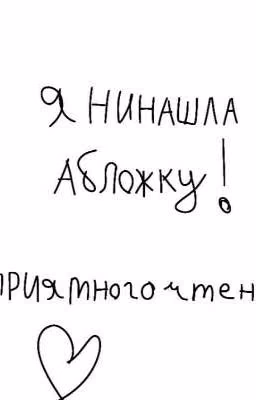 Я НИНАШЛА
АБЛОЖКУ!
ПРИЯТНОГО ЧТЕН